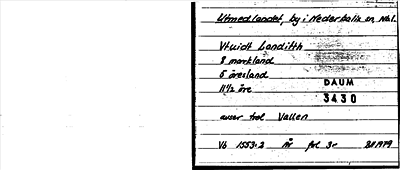 Utmedlandet, by i Nederkalix sn, Nbl.
Vtuidt Landith
8 markland
5 öresland
11½ öre
DAUM
3430
auser trol Vallen
Vb 1553:2 nr fol 3r